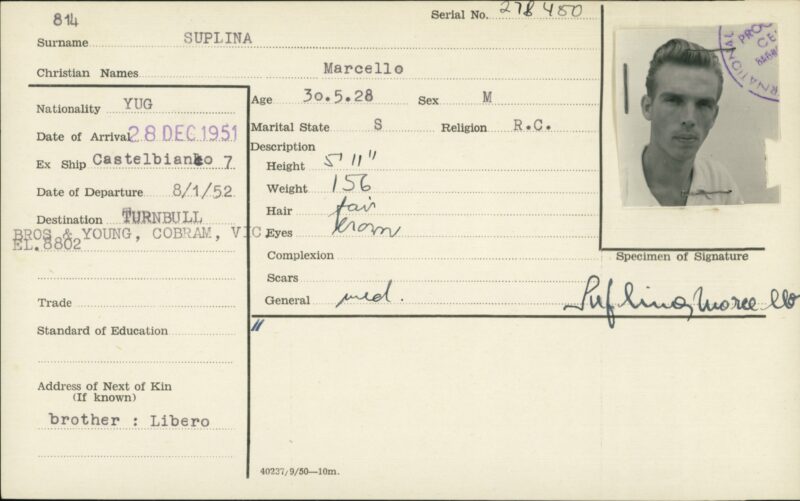 814
Serial No. 278450
Surname SUPLINA
Christian Names Marcello
Nationality YUG
Date of Arrival 28 DEC 1951
Ex Ship Castelbianco 7
Date of Departure 8/1/52
Destination TURNBULL
BROS & YOUNG, COBRAM, VIC.
EL.8802
Trade
Standard of Education
Address of Next of Kin
(If known)
brother : Libero
Age 30.5.28 Sex M
Marital State S Religion R.C.
Description
Height 5' 11"
Weight 156
Hair fair
Eyes brown
Complexion
Scars
General med.
"
40237/9/50—10m.
Specimen of Signature
Suplina, Marcello